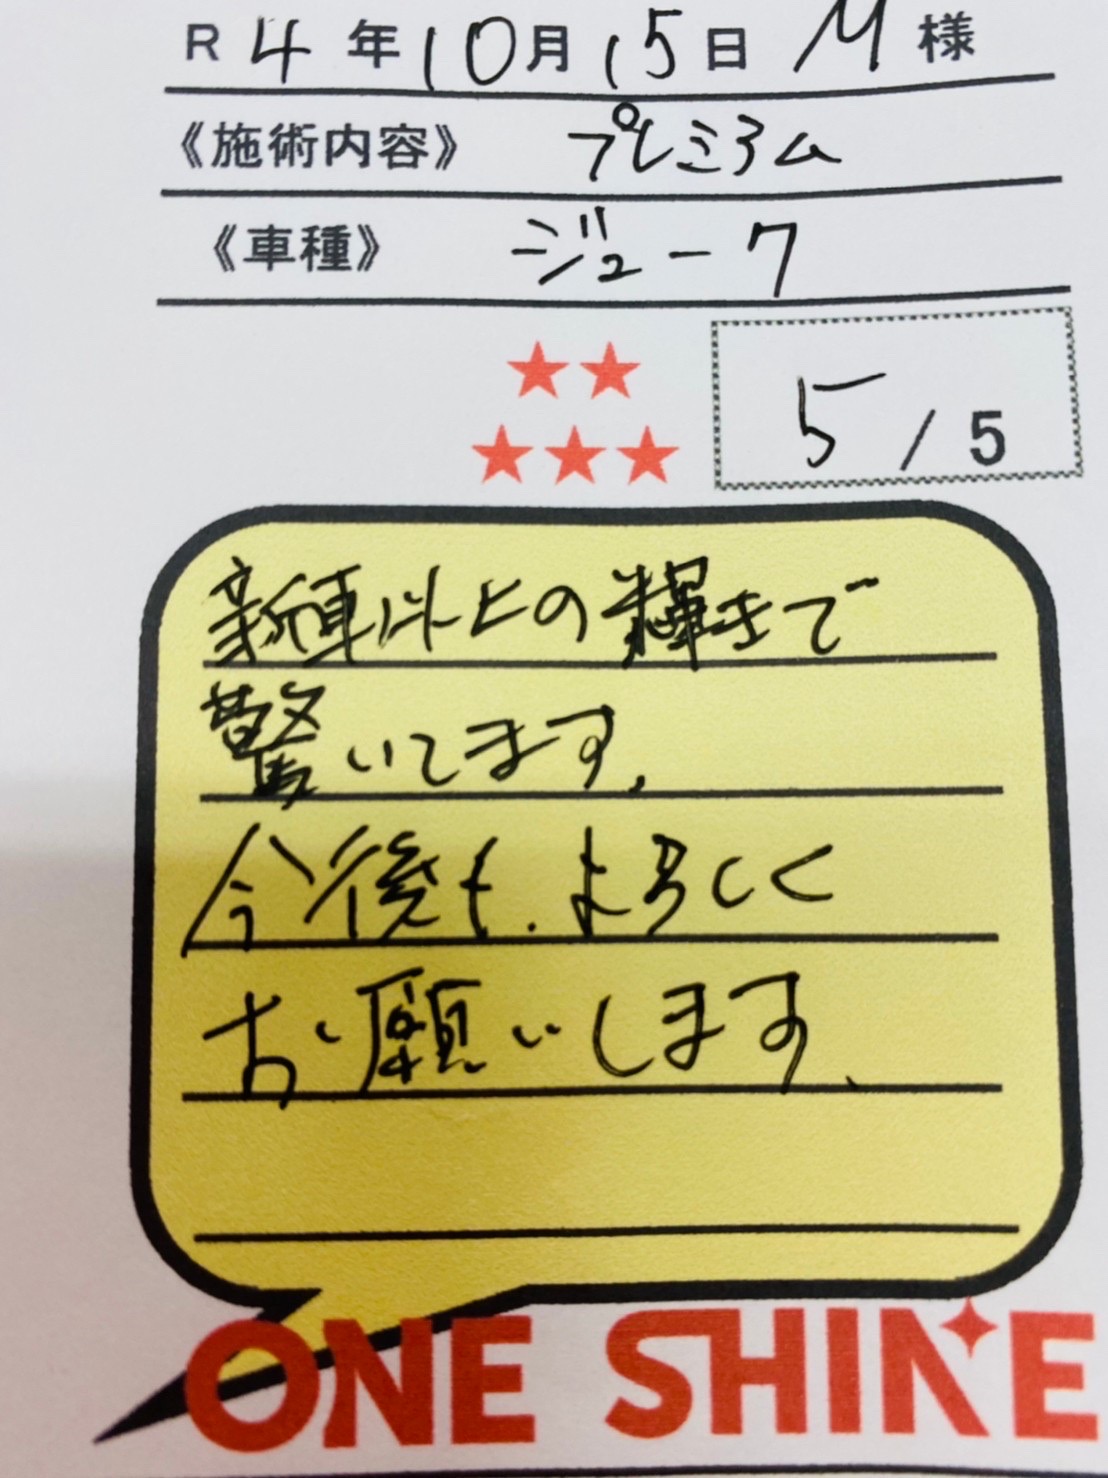 R4年10月15日 M様
《施術内容》 プレミアム
《車種》 ジューク
★★
★★★
5/5
新車以上の輝きで
驚いてます。
今後も、よろしく
お願いします。
ONE SHINE